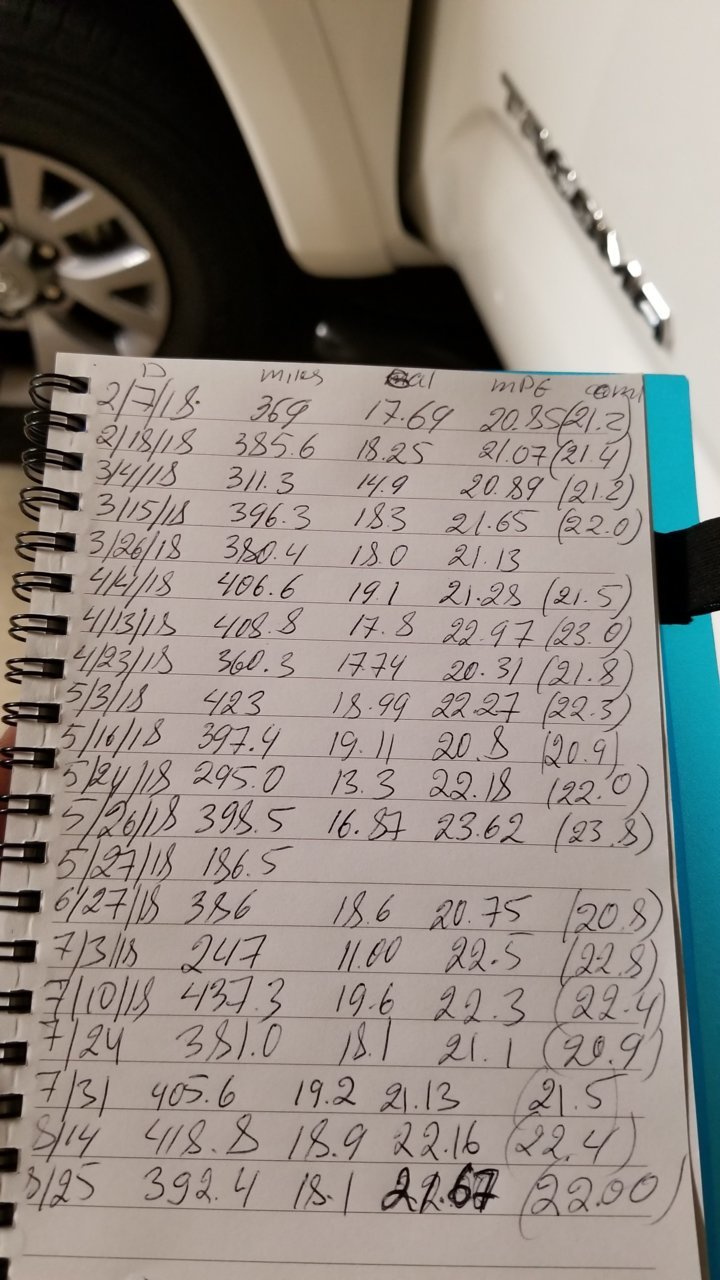 TACOMA
D miles Gal MPG comp
2/7/18 369 17.69 20.85 (21.2)
2/18/18 385.6 18.25 21.07 (21.4)
3/4/18 311.3 14.9 20.89 (21.2)
3/15/18 396.3 18.3 21.65 (22.0)
3/26/18 380.4 18.0 21.13
4/4/18 406.6 19.1 21.28 (21.5)
4/13/18 408.8 17.8 22.97 (23.0)
4/23/18 360.3 17.74 20.31 (21.8)
5/3/18 423 18.99 22.27 (22.3)
5/16/18 397.4 19.11 20.8 (20.9)
5/24/18 295.0 13.3 22.18 (22.0)
5/26/18 398.5 16.87 23.62 (23.8)
5/27/18 186.5
6/27/18 386 18.6 20.75 (20.8)
7/3/18 247 11.00 22.5 (22.8)
7/10/18 437.3 19.6 22.3 (22.4)
7/24 381.0 18.1 21.1 (20.9)
7/31 405.6 19.2 21.13 (21.5)
8/14 418.8 18.9 22.16 (22.4)
8/25 392.4 18.1 21.67 (22.00)